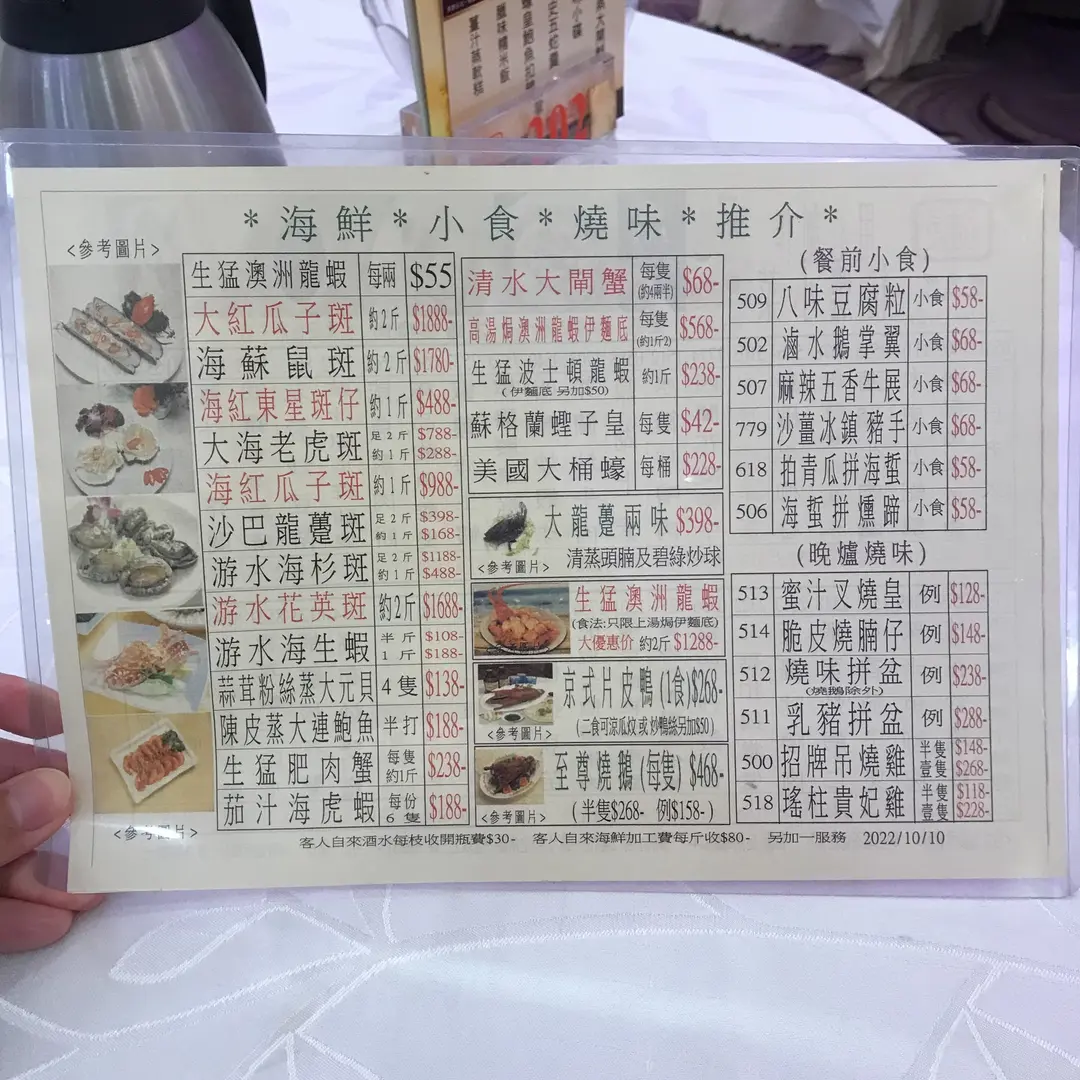 *海鮮*小食*燒味*推介*
<參考圖片>
生猛澳洲龍蝦 每兩 $55
大紅瓜子斑 約2斤 $1888-
海蘇鼠斑 約2斤 $1780-
海紅東星斑仔 約1斤 $488-
大海老虎斑 足2斤 $788-
約1斤 $288-
海紅瓜子斑 約1斤 $988-
沙巴龍躉斑 足2斤 $398-
約1斤 $168-
游水海杉斑 足2斤 $1188-
約1斤 $488-
游水花英斑 約2斤 $1688-
游水海生蝦 半斤 $108-
1斤 $188-
蒜茸粉絲蒸大元貝 4隻 $138-
陳皮蒸大連鮑魚 半打 $188-
生猛肥肉蟹 每隻 約1斤 $238-
茄汁海虎蝦 每份 6隻 $188-
<參考圖片>
清水大閘蟹 每隻 (約4兩半) $68-
高湯焗澳洲龍蝦伊麵底 每隻 (約1斤2) $568-
生猛波士頓龍蝦 約1斤 $238-
(伊麵底 另加$50)
蘇格蘭蟶子皇 每隻 $42-
美國大桶蠔 每桶 $228-
大龍躉兩味 $398-
<參考圖片> 清蒸頭腩及碧綠炒球
生猛澳洲龍蝦
(食法:只限上湯焗伊麵底)
大優惠价 約2斤 $1288-
京式片皮鴨 (1食) $268-
<參考圖片> (二食可涼瓜炆 或 炒鴨絲另加$50)
至尊燒鵝 (每隻) $468-
<參考圖片> (半隻$268- 例$158-)
(餐前小食)
509 八味豆腐粒 小食 $58-
502 滷水鵝掌翼 小食 $68-
507 麻辣五香牛展 小食 $68-
779 沙薑冰鎮豬手 小食 $68-
618 拍青瓜拼海蜇 小食 $58-
506 海蜇拼燻蹄 小食 $58-
(晚爐燒味)
513 蜜汁叉燒皇 例 $128-
514 脆皮燒腩仔 例 $148-
512 燒味拼盆 例 $238-
(燒鵝除外)
511 乳豬拼盆 例 $288-
500 招牌吊燒雞 半隻 $148-
壹隻 $268-
518 瑤柱貴妃雞 半隻 $118-
壹隻 $228-
客人自來酒水每枝收開瓶費$30- 客人自來海鮮加工費每斤收$80- 另加一服務 2022/10/10